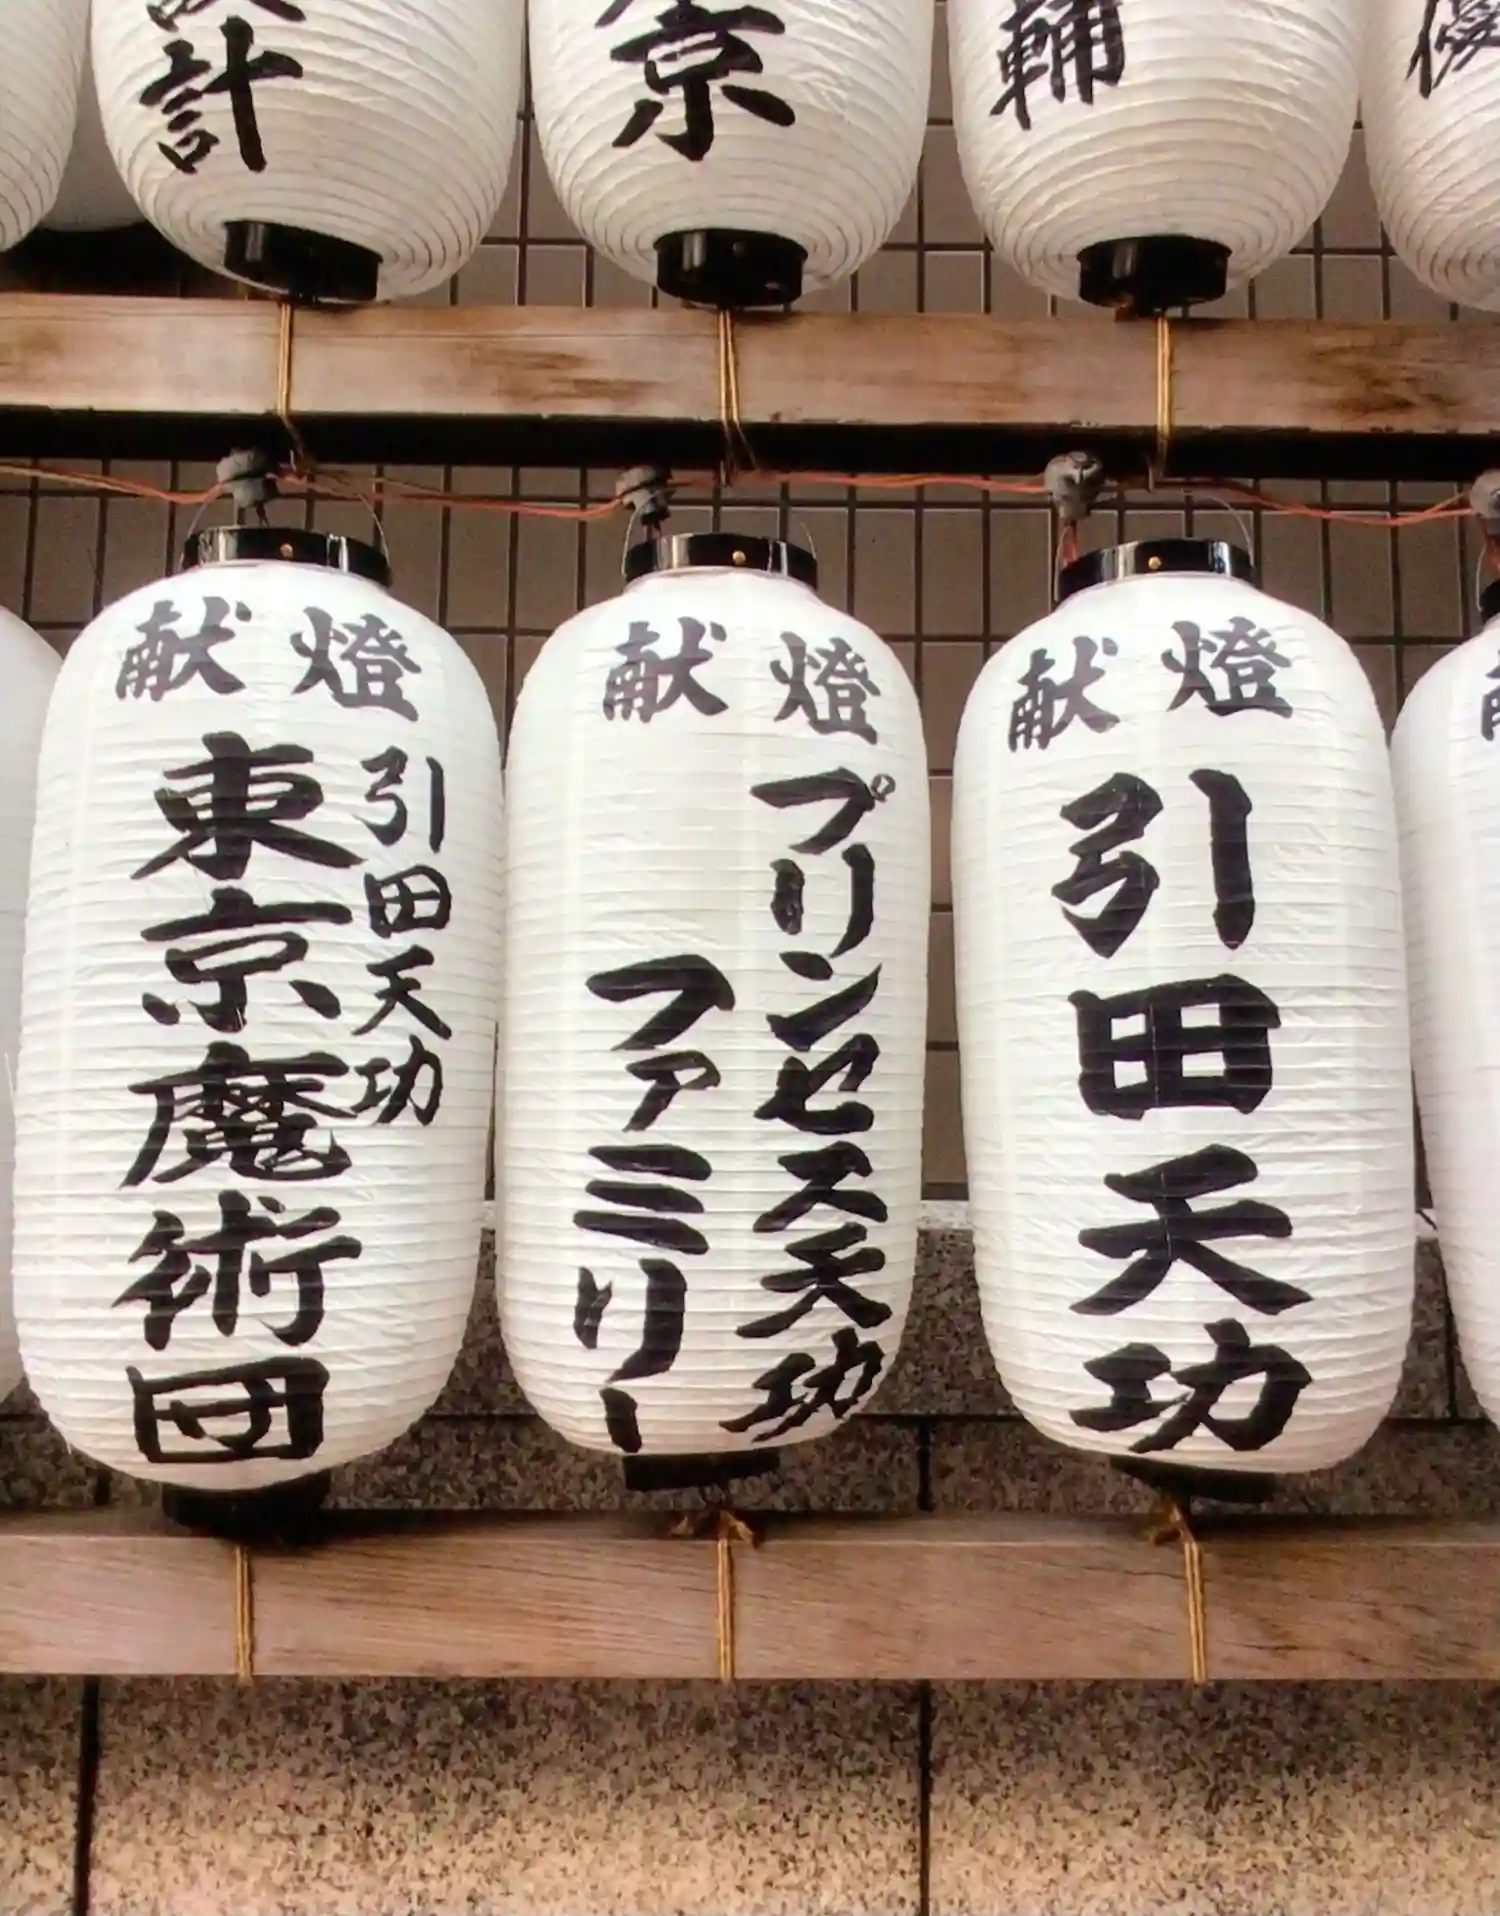 計
京
輔
献燈
引田天功
東京魔術団
献燈
プリンセス天功
ファミリー
献燈
引田天功